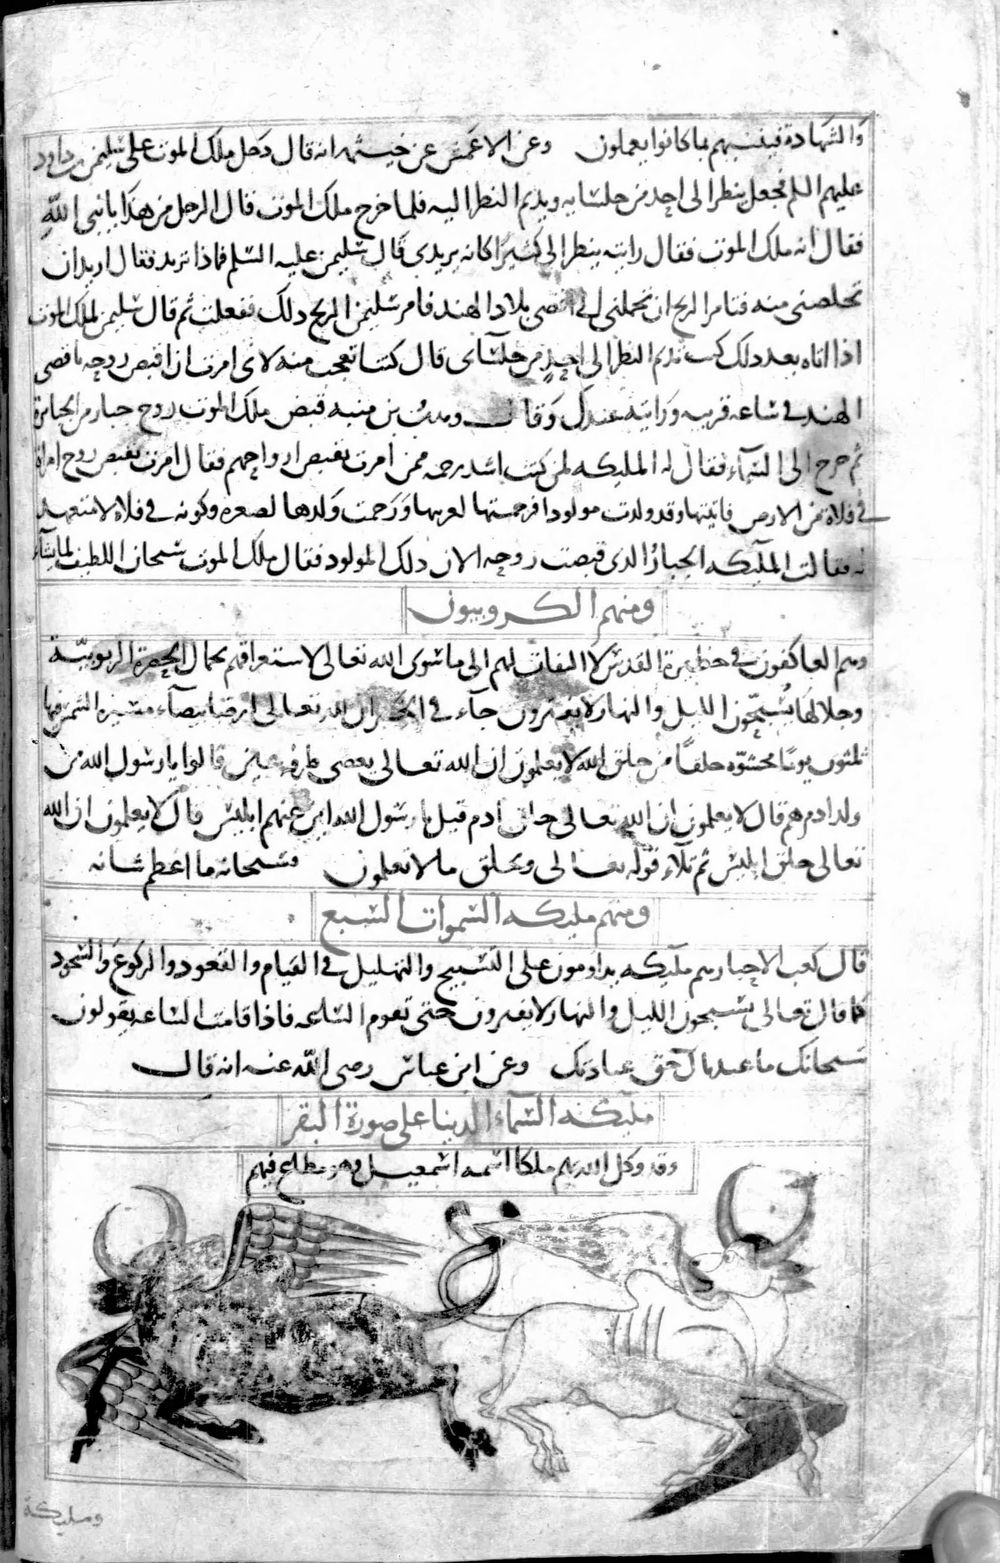 والشهادة فينبئهم بما كانوا يعملون وعن الاعمش عن خيثمة انه قال دخل ملك الموت على سليمن بن داود
عليهم السلم فجعل ينظر الى احد من جلسايه ويديم النظر اليه فلما خرج ملك الموت قال الرجل من هذا يا نبى الله
فقال انه ملك الموت فقال رايته ينظر الى كثيرا كانه يريدنى قال سليمن عليه السلم فماذا تريد فقال اريد ان
تخلصنى منه فتامر الريح ان تحملنى الى اقصى بلاد الهند فامر سليمن الريح دلك ففعلت ثم قال سليمن لملك الموت
اذا اتاه بعد دلك كنت تديم النظر الى احد من جلسآى قال كنت اتعجب منه لانى امرت ان اقبض روحه باقصى
الهند فى ساعة قريبه ورايته عندك وقال وهب بن منبه قبض ملك الموت روح جبار من الجبابرة
ثم عرج الى السمآء فقال له المليكه لمن كنت اشد رحمه ممن امرت بقبض ارواحهم فقال امرت بقبض روح امراة
فى فلاة من الارض فاتيتها وقد ولدت مولودا فرحمتها لغربتها ورحمت ولدها لصغره وكونه فى فلاة لا متعهد
له فقالت المليكه الجبار الدى قبضت روحه الان دلك المولود فقال ملك الموت سبحان اللطيف لما يشآء
ومنهم الكروبيون
وهم العاكفون فى حظيرة القدس لا التفات لهم الى ما سوى الله تعالى لاستغراقهم بجمال الحضرة الربوبية
وجلالها يسبحون الليل والنهار لا يفترون جآء فى الخبر ان لله تعالى ارضا بيضآء مسيرة الشمس فيها
ثلثون يوما محشوة خلقا من خلق الله لا يعلمون ان الله تعالى يعصى طرفة عين قالوا يا رسول الله من
ولد ادم هم قال لا يعلمون ان الله تعالى خلق ادم قيل يا رسول الله اين عنهم ابليس قال لا يعلمون ان الله
تعالى خلق ابليس ثم تلاء قوله تعالى ويخلق ما لا تعلمون فسبحانه ما اعظم شانه
ومنهم مليكه السموات السبع
قال كعب الاحبار هم مليكه يداومون على التسبيح والتهليل فى القيام والقعود والركوع والسجود
كما قال تعالى يسبحون الليل والنهار لا يفترون حتى تقوم الساعه فاذا قامت الساعه يقولون
سبحانك ما عبدناك حق عبادتك وعن ابن عباس رضى الله عنه انه قال
مليكه السمآء الدنيا على صورة البقر
وقد وكل الله بهم ملكا اسمه اسمعيل وهو مطلع فيهم
ومليكة